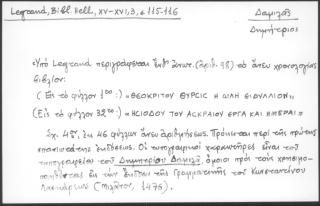 Legrand, Bibl. Hell, XV-XVI, 3, σ. 115-116
Δαμιλᾶς
Δημήτριος
Ὑπὸ Legrand περιγράφεται (ἀριθ. 98) τὸ ἄνευ χρονολογίας
βιβλίον:
(Εἰς τὸ φύλλον 1ον:) "ΘΕΟΚΡΙΤΟΥ ΘΥΡΣΙΣ Η ΩΔΗ ΕΙΔΥΛΛΙΟΝ"
(Εἰς τὸ φύλλον 32ον:) "ΗΣΙΟΔΟΥ ΤΟΥ ΑΣΚΡΑΙΟΥ ΕΡΓΑ ΚΑΙ ΗΜΕΡΑΙ"
Σχ. 4ον, ἐκ 46 φύλλων ἄνευ ἀριθμήσεως. Πρόκειται περὶ τῆς πρώτης
ἐκδόσεως. Οἱ τυπογραφικοὶ χαρακτῆρες εἶναι τοῦ
τυπογραφείου τοῦ Δημητρίου Δαμιλᾶ, ὅμοιοι πρὸς τοὺς χρησιμο-
ποιηθέντας εἰς τὴν ἔκδοσιν τῆς Γραμματικῆς τοῦ Κωνσταντίνου
Λασκάρεως (Μιλᾶνον, 1476).